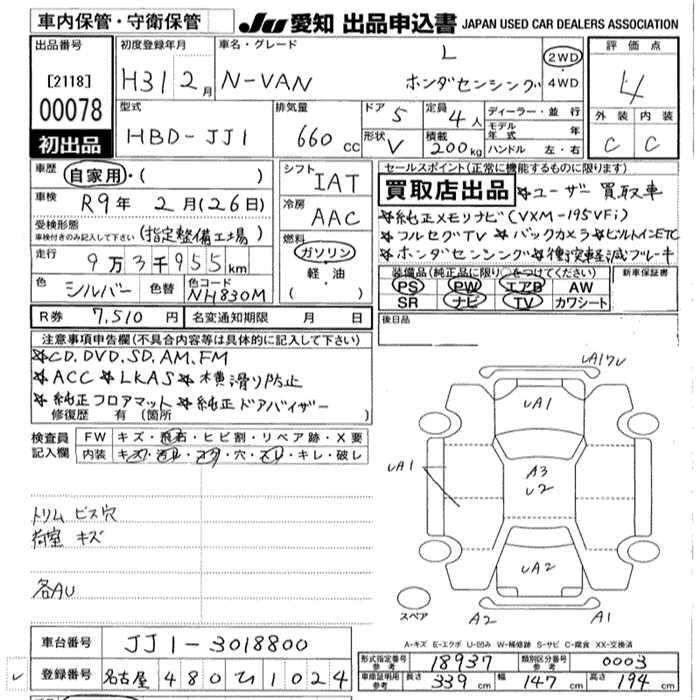 車内保管・守衛保管
JU 愛知 出品申込書 JAPAN USED CAR DEALERS ASSOCIATION
出品番号
[2118]
00078
初出品
初度登録年月
H31 2月
車名・グレード
N-VAN
L
ホンダセンシング
2WD・4WD
評価点
4
外装 内装
C C
型式
HBD-JJ1
排気量
660 CC
ドア 5
形状 V
定員 4人
積載 200kg
ディーラー・並行
モデル年式 年
ハンドル 左・右
車歴
自家用・( )
車検
R9年 2月(26日)
受検形態
車検付きのみ記入して下さい (指定整備工場)
走行
9万3千955km
色 シルバー 色替 色コード NH830M
シフト IAT
冷房 AAC
燃料
ガソリン
軽・油
( )
セールスポイント(正常に機能するものに限ります)
買取店出品 ☆ユーザー買取車
☆純正メモリナビ(VXM-195VFi)
☆フルセグTV ☆バックカメラ☆ビルトインETC
☆ホンダセンシング☆衝突軽減ブレーキ
装備品(純正品に限り○をつけてください)
新車保証書
PS PW エアB AW
SR ナビ TV カワシート
R券 7,510円 名変通知期限 月 日
後日品
注意事項申告欄(不具合内容等は具体的に記入して下さい)
☆CD.DVD.SD.AM.FM
☆ACC ☆LKAS ☆横滑り防止
☆純正フロアマット ☆純正ドアバイザー
修復歴 有(箇所
検査員記入欄
FW キズ・飛石・ヒビ割・リペア跡・X要
内装 キズ・汚れ・コゲ・穴・スレ・キレ・破レ
トリム ビス穴
荷室 キズ
各AU
UA17U
UA1
UA1
A3
U2
UA2
A2
A1
スペア
A-キズ E-エクボ U-凹み W-補修跡 S-サビ C-腐食 XX-交換済
車台番号 JJ1-3018800
登録番号 名古屋 480 ひ 1024
形式指定番号参考 18937 類別区分番号参考 0003
車庫証明用参考 長さ 339cm 幅 147cm 高さ 194cm